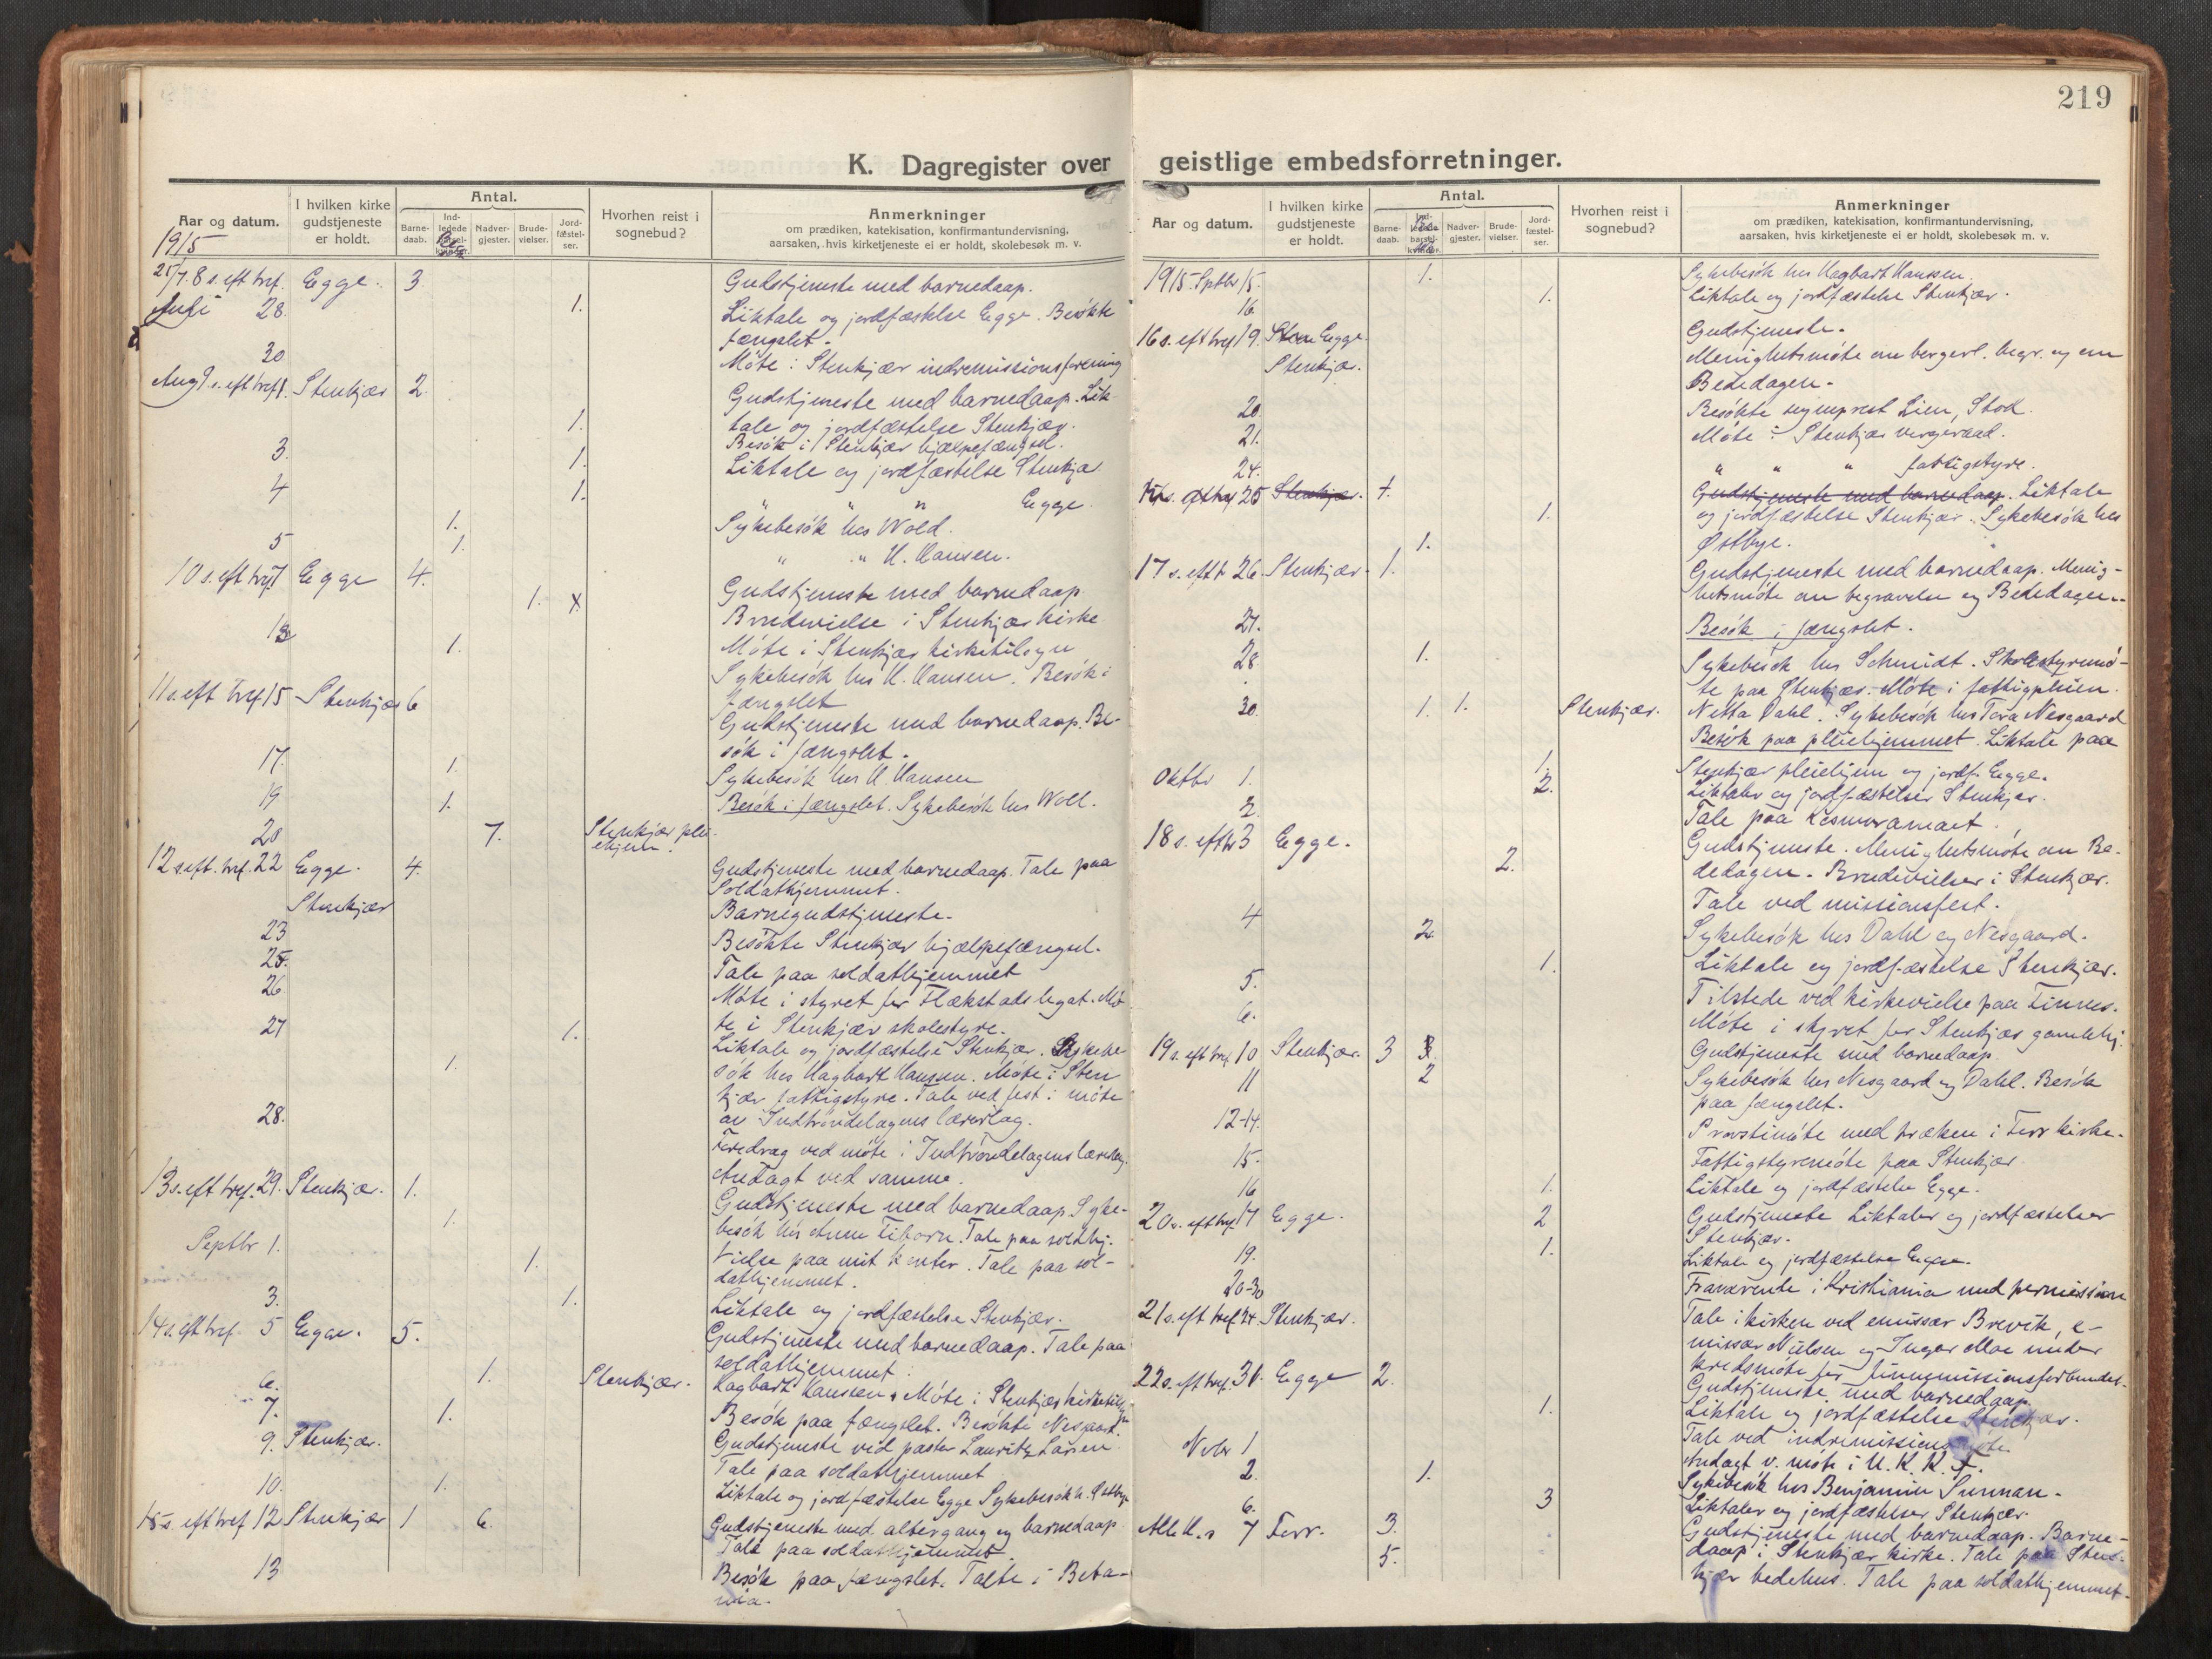 219
K. Dagregister over geistlige embedsforretninger.
Aar og datum.
I hvilken kirke gudstjeneste er holdt.
Antal.
Barne-daab.
Nadver-gjester.
Brude-vielser.
Jord-fæstel-ser.
Hvorhen reist i sognebud?
Anmerkninger
om prædiken, katekisation, konfirmantundervisning,
aarsaken, hvis kirketjeneste ei er holdt, skolebesøk m. v.
1915
25/7. 8 s. eft tref. Egge. 3. Gudstjeneste med barnedaap.
Juli 28. 1. Liktale og jordfæstelse Egge. Besökte
fængslet.
30 Möte i Stenkjær indremissionsforening
Aug 9 s. eft tref 1. Stenkjær 2. Gudstjeneste med barnedaap. Lik
1. tale og jordfæstelse Stenkjær.
Besök i Stenkjær hjælpefængsel.
3. 1. Liktale og jordfæstelse Stenkjær
4 1. " " " Egge.
1. Sykebesök hos Wold.
5 1. " " H. Hansen.
10 s. eft tref Egge 4. Gudstjeneste med barnedaap
1. x Brudevielse i Stenkjær kirke
Möte i Stenkjær kirketilsyn
1. Sykebesök hos H. Hansen. Besök i
fængslet
11 s. eft tref. 15 Stenkjær 6 Gudstjeneste med barnedaap. Be-
sök i fængslet.
17. 1. Sykebesök hos H. Hansen
19 1. Besök i fængslet. Sykebesök hos Woll.
20 7. Stenkjær plei-
ehjem.
12 s. eft. tref. 22 Egge. 4. Gudstjeneste med barnedaap. Tale paa
Soldathjemmet.
Stenkjær Barnegudstjeneste.
23 Besökte Stenkjær hjælpefængsel.
25. Tale paa soldathjemmet
26 Möte i styret for Flækstads legat. Mö-
te i Stenkjær skolestyre.
27 1. Liktale og jordfæstelse Stenkjær. Sykebe
1. sök hos Hagbart Hansen. Möte i Sten
kjær fattigstyre. Tale ved fest i möte
av Indtröndelagens lærerlag.
28. Foredrag ved möte i Indtröndelagens lærerlag.
Andagt ved samme.
13 s. eft tref. 29. Stenkjær. 1. Gudstjeneste med barnedaap. Syke-
1. besök hos Tale paa soldthj.
Septbr 1. 1. Vielse paa mit kontor. Tale paa sol-
dathjemmet.
3. 1. Liktale og jordfæstelse Stenkjær.
14 s. eft tref. 5 Egge. 5. Gudstjeneste med barnedaap. Tale paa
soldathjemmet.
6. 1. Stenkjær. Hagbart Hansen. Möte i Stenkjær kirketilsyn
7. 1. Besök paa fængslet. Besökte Nesgaard.
9. Stenkjær. Gudstjeneste ved pastor Lauritz Larsen.
Tale paa soldathjemmet
10. 1. Liktale og jordfæstelse Egge Sykebesök h. Östbye
15 s. eft tref 12 Stenkjær 1 6. Gudstjeneste med altergang og barnedaap
Tale paa soldathjemmet.
13 Besök paa fængslet. Talte i Beta-
nia.
Aar og datum.
I hvilken kirke gudstjeneste er holdt.
Antal.
Barne-daab.
Nadver-gjester.
Brude-vielser.
Jord-fæstel-ser.
Hvorhen reist i sognebud?
Anmerkninger
om prædiken, katekisation, konfirmantundervisning,
aarsaken, hvis kirketjeneste ei er holdt, skolebesøk m. v.
1915. Sptbr 15. 1. Sykebesök hos Hagbart Hanssen.
16. 1. Liktale og jordfæstelse Stenkjær.
16 s. eft tref 19. Egge. Gudstjeneste.
Stenkjær. Menighetsmöte om borgerl. begr. og om
Bededagen.
20. Besökte sogneprest Lien, Stod.
21. Möte i Stenkjær vergeraad.
24. " " " fattigstyre.
25 Stenkjær. Gudstjeneste med barnedaap. Liktale
1. og jordfæstelse Stenkjær. Sykebesök hos
1. Østbye.
17 s. eft tr 26. Stenkjær. 1. Gudstjeneste med barnedaap. Menig-
hetsmöte om begravelse og Bededagen.
27. Besök i fængslet.
28. 1. Sykebesök hos Schmidt. Skolestyremö-
te paa Stenkjær. Möte i fattigpleien.
30. 1. 1. Stenkjær. Netta Dahl. Sykebesök hos Tora Nesgaard
Besök paa pleiehjemmet. Liktale paa
1. Stenkjær pleiehjem og jordf. Egge.
Oktbr 1. 2. Liktaler og jordfæstelser Stenkjær.
2. Tale paa
18 s. eft tr 3 Egge. Gudstjeneste. Menighetsmöte om Be-
2. dedagen. Brudevielser i Stenkjær.
Tale ved missionsfest.
4 2 Sykebesök hos Dahl og Nesgaard.
1. Liktale og jordfæstelse Stenkjær.
5. Tilstede ved kirkevielse paa Finnes.
6. Möte i styret for Stenkjær gamlehj.
19 s. eft tref 10 Stenkjær. 3 Gudstjeneste med barnedaap.
11 2 Sykebesök hos Nesgaard og Dahl. Besök
paa fængslet.
12-14. Provstimöte med præken i Forr kirke.
15. Fattigstyremöte paa Stenkjær.
16 1. Liktale og jordfæstelse Egge.
20 s. eft tref. 17 Egge. 2 Gudstjeneste Liktaler og jordfæstelser
Stenkjær.
19. 1. Liktale og jordfæstelse Egge.
20-30 Fraværende i Kristiania med permission
21 s. eft tref 24. Stenkjær. Tale i kirken ved emissær Brevik, e-
missær Nielsen og Inger Moe under
kredsmöte for finnemissionsforbundet.
22 s. eft tref. 31. Egge 2. Gudstjeneste med barnedaap.
1. Liktale og jordfæstelse Stenkjær.
Novbr 1 Tale ved indremissionsmöte
2. Andagt v. möte i U. K. K. F.
1. Sykebesök hos Benjamin Sunnan.
6. 3 Liktaler og jordfæstelser Stenkjær.
Alle H. s 7 Forr. 3. Gudstjeneste med barnedaap. Barne-
5. daap i Stenkjær kirke. Tale paa Sten-
kjær bedehus. Tale paa soldathjemmet.